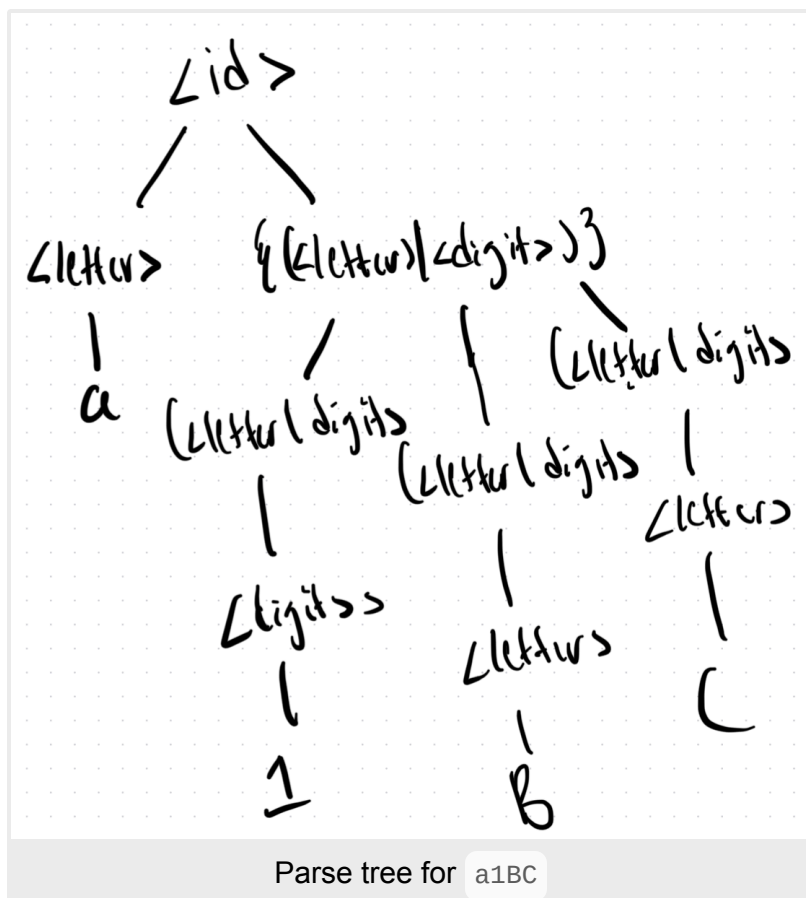 <id>
<letter> {(<letter>|<digit>)}
a
(<letter|digit>
(<letter|digit>
(<letter|digit>
<letter>
<digit>>
<letter>
C
1
B
Parse tree for a1BC